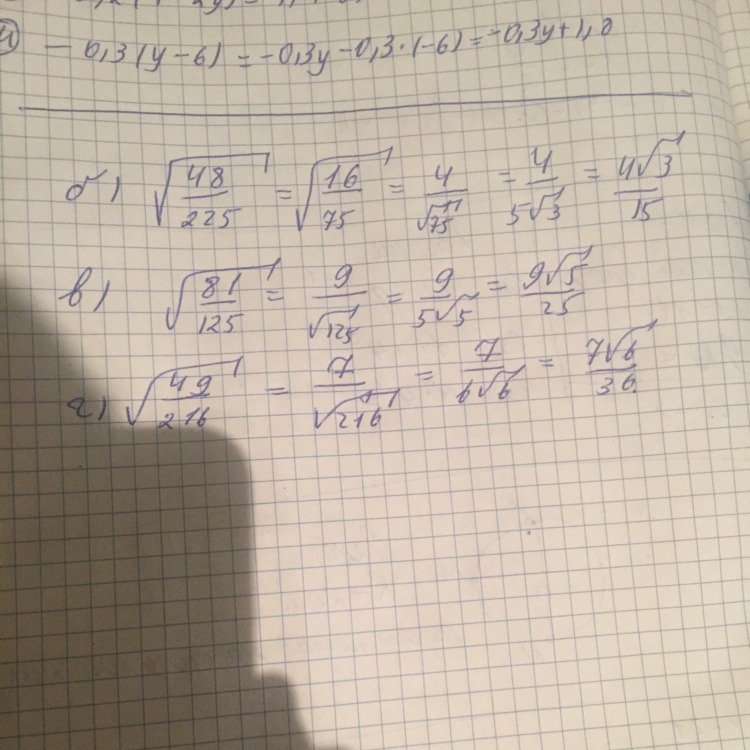 и) - 0,3(y-6) = -0,3y-0,3·(-6) = -0,3y+1,8
б) √(48/225) = √(16/75) = 4/√75 = 4/(5√3) = 4√3/15
в) √(81/125) = 9/√125 = 9/(5√5) = 9√5/25
г) √(49/216) = 7/√216 = 7/(6√6) = 7√6/36